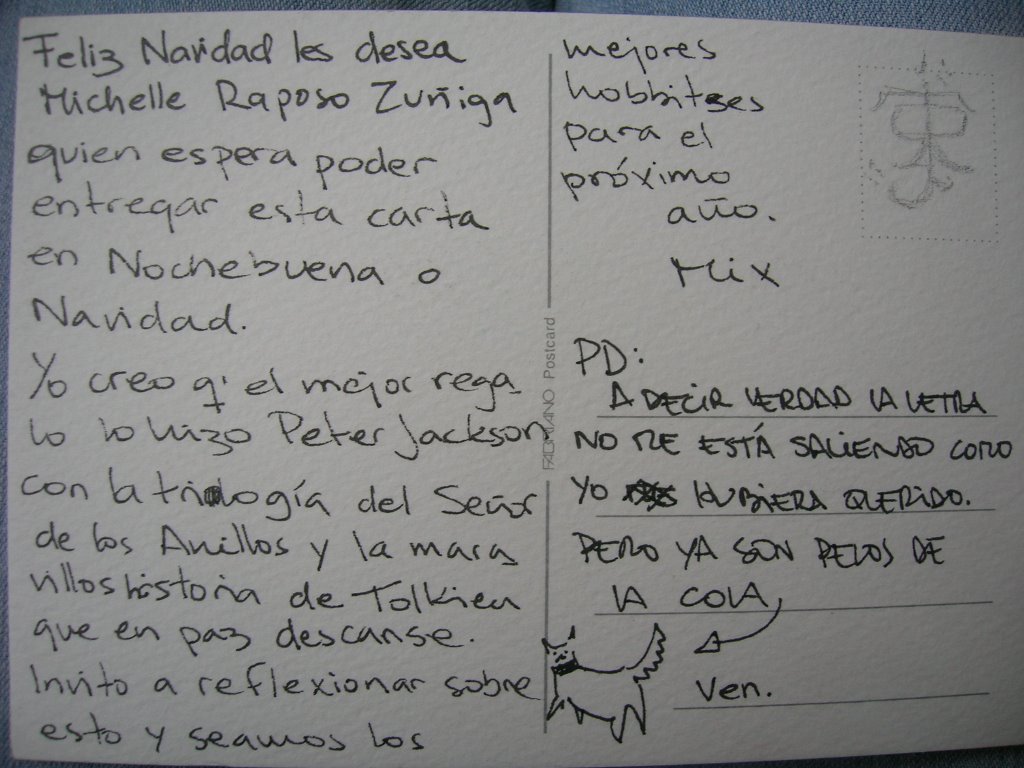 Feliz Navidad les desea
Michelle Raposo Zuñiga
quien espera poder
entregar esta carta
en Nochebuena o
Navidad.
Yo creo q' el mejor rega
lo lo hizo Peter Jackson
con la trilogía del Señor
de los Anillos y la mara
villos historia de Tolkien
que en paz descanse.
Invito a reflexionar sobre
esto y seamos los
mejores
hobbitses
para el
próximo
año.
Mix
PD:
A DECIR VERDAD LA LETRA
NO ME ESTÁ SALIENDO COMO
YO HUBIERA QUERIDO.
PERO YA SON PELOS DE
LA COLA,
Ven.
FABRIANO Postcard